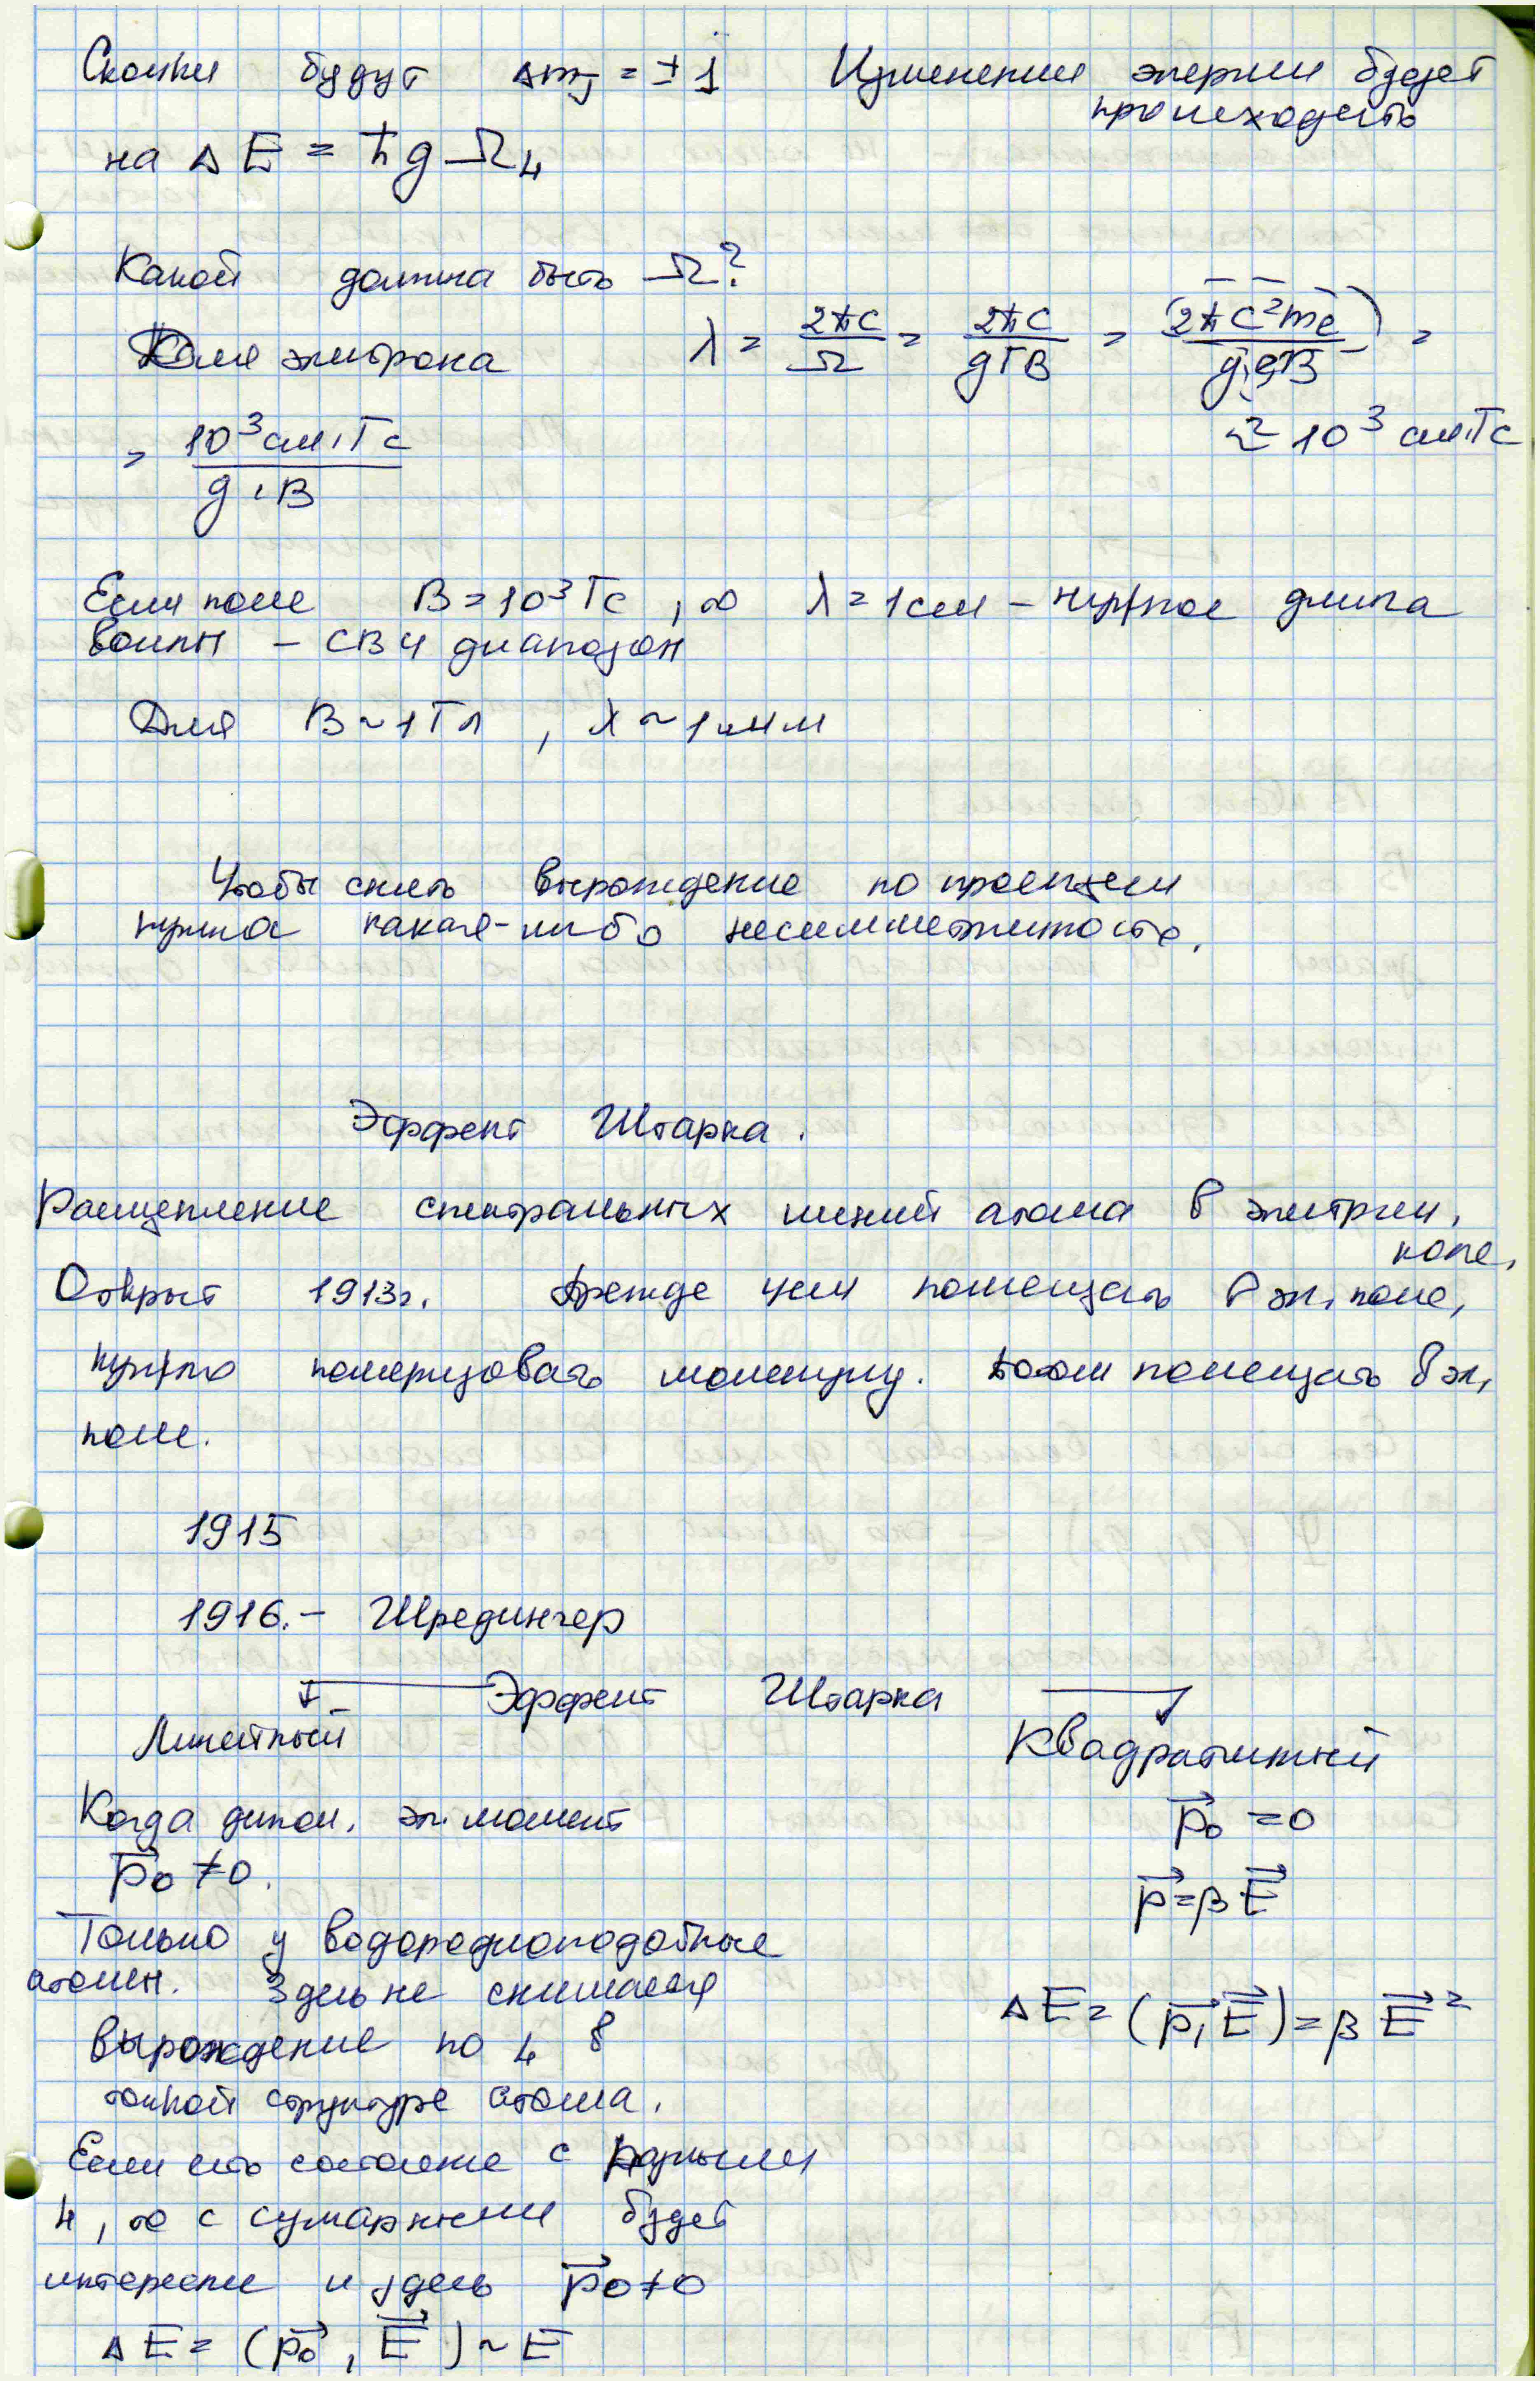 Скачки будут Δm_J = ±1 Изменение энергии будет
происходить
на ΔE = ħgΩ_L
Какой должна быть Ω?
Для электрона λ = 2πc/Ω = 2πc/(gГB) = (2πc²mₑ)/(g·eB) =
≈ 10³ см·Гс
= 10³ см·Гс/(g·B)
Если поле B = 10³ Гс, то λ = 1 см – нужная длина
волны – СВЧ диапазон
Для B ~ 1 Тл, λ ~ 1 мм
Чтобы снять вырождение по проекции
нужна какая-либо несимметричность.
Эффект Штарка.
Расщепление спектральных линий атома в электрич.
поле.
Открыт 1913г. Прежде чем помещать в эл. поле,
нужно поляризовать молекулу. Потом помещать в эл.
поле.
1915
1916. – Шредингер
Эффект Штарка
Линейный
Квадратичный
Когда дипол. эл. момент
p⃗₀ ≠ 0.
Только у водородноподобные
атомы. Здесь не снимается
вырождение по L в
тонкой структуре атома.
Если есть состояние с разными
L, то с суммарными будет
интересно и здесь p⃗₀ ≠ 0
ΔE = (p⃗₀, E⃗) ~ E
p⃗₀ = 0
p⃗ = βE⃗
ΔE = (p⃗, E⃗) = βE⃗²